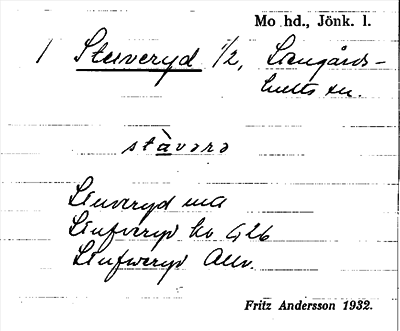 Mo hd., Jönk. l.
1 Stuveryd 1/2, Långårds-
hults sn.
stàvərə
Stuveryd
Stufveryd
Stufweryd Allm.
Fritz Andersson 1932.